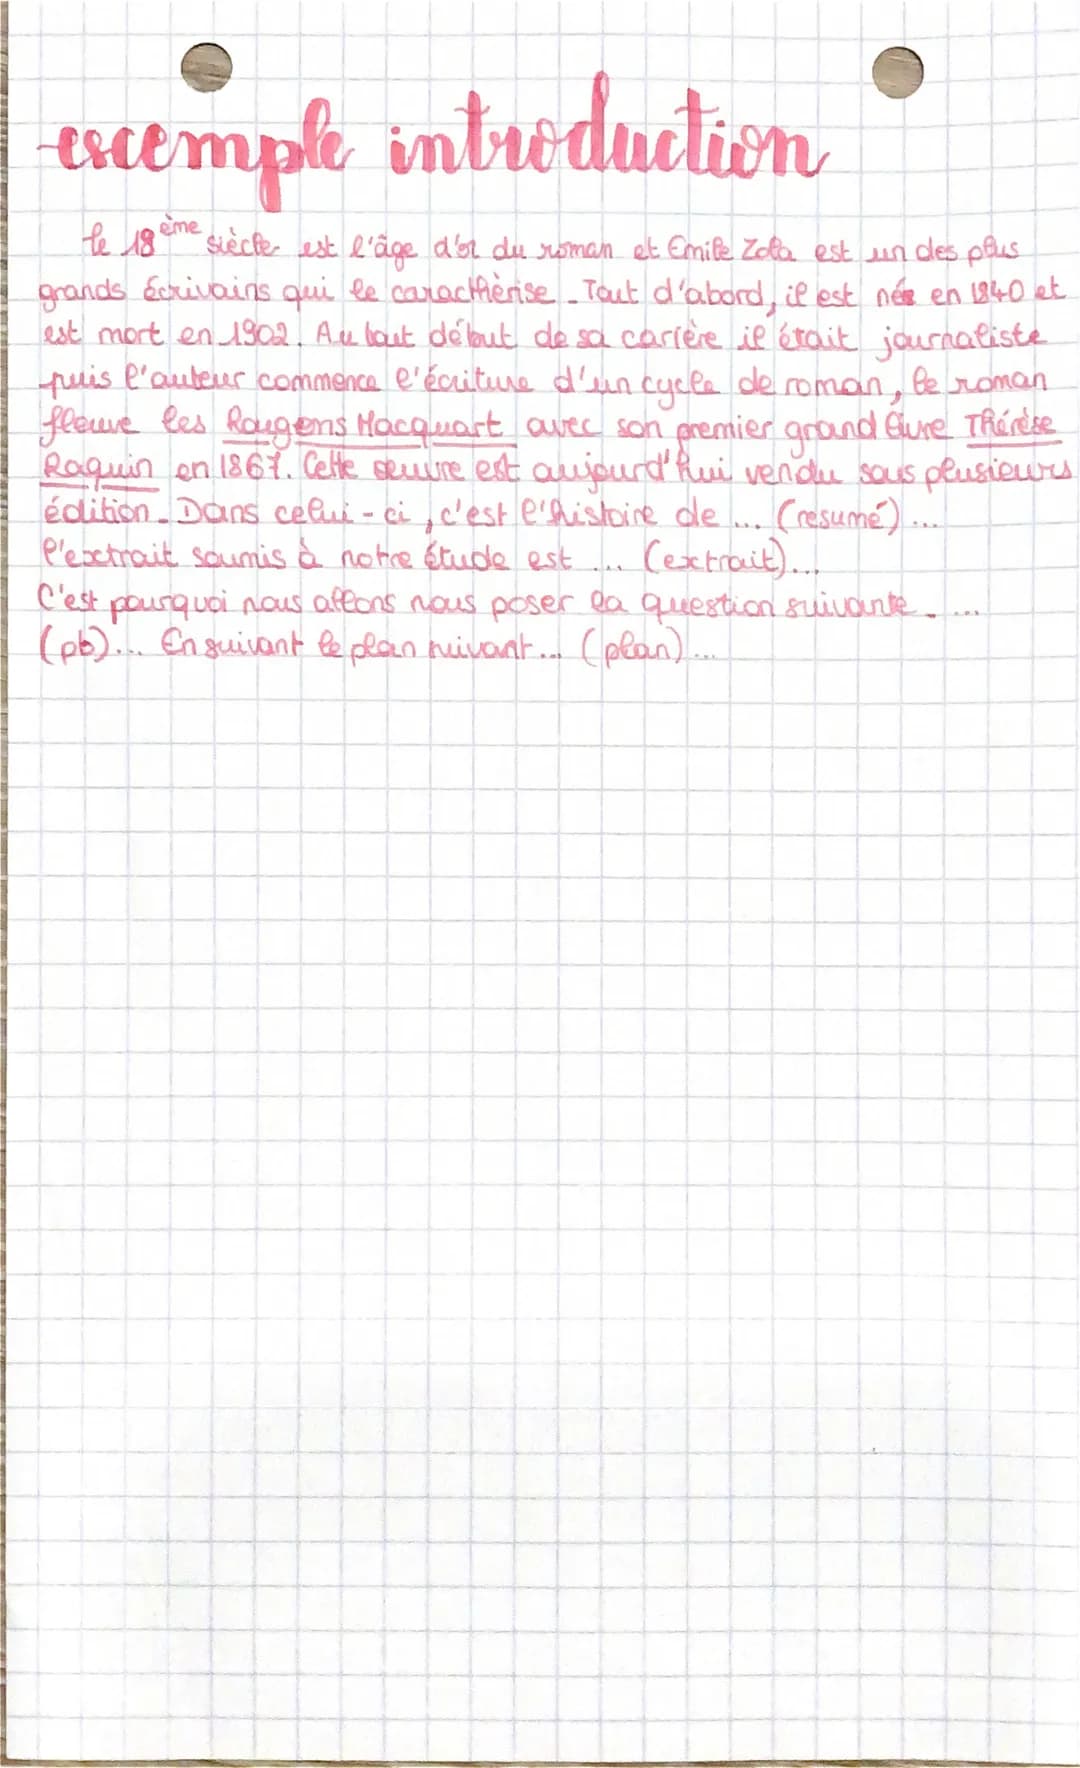 excemple introduction
le 18ème siècle est l'âge d'or du roman et Emile Zola est un des plus
grands écrivains qui le caracthèrise. Tout d'abord, il est née en 1840 et
est mort en 1902. Au tout début de sa carière il était journaliste
puis l'auteur commence l'écriture d'un cycle de roman, le roman
fleuve les Rougons Macquart avec son premier grand livre Thérèse
Raquin en 1867. Cette oeuvre est aujourd'hui vendu sous plusieurs
édition. Dans celui-ci, c'est l'histoire de ... (resumé) ...
l'extrait soumis à notre étude est ... (extrait)...
C'est pourquoi nous allons nous poser la question suivante. ...
(pb)... En suivant le plan suivant... (plan) ...